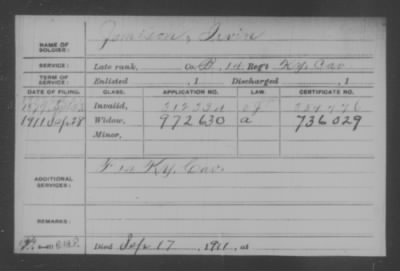 NAME OF SOLDIER: Jamison, Irvin
SERVICE: Late rank, Co. B, 1st Regt Ky. Cav
TERM OF SERVICE: Enlisted , 1 Discharged , 1
DATE OF FILING. CLASS. APPLICATION NO. LAW. CERTIFICATE NO.
Invalid,
1911 Sep 28 Widow, 972630 a 736029
Minor,
ADDITIONAL SERVICES: Ky. Cav.
REMARKS:
Died Sep 17, 1911, at